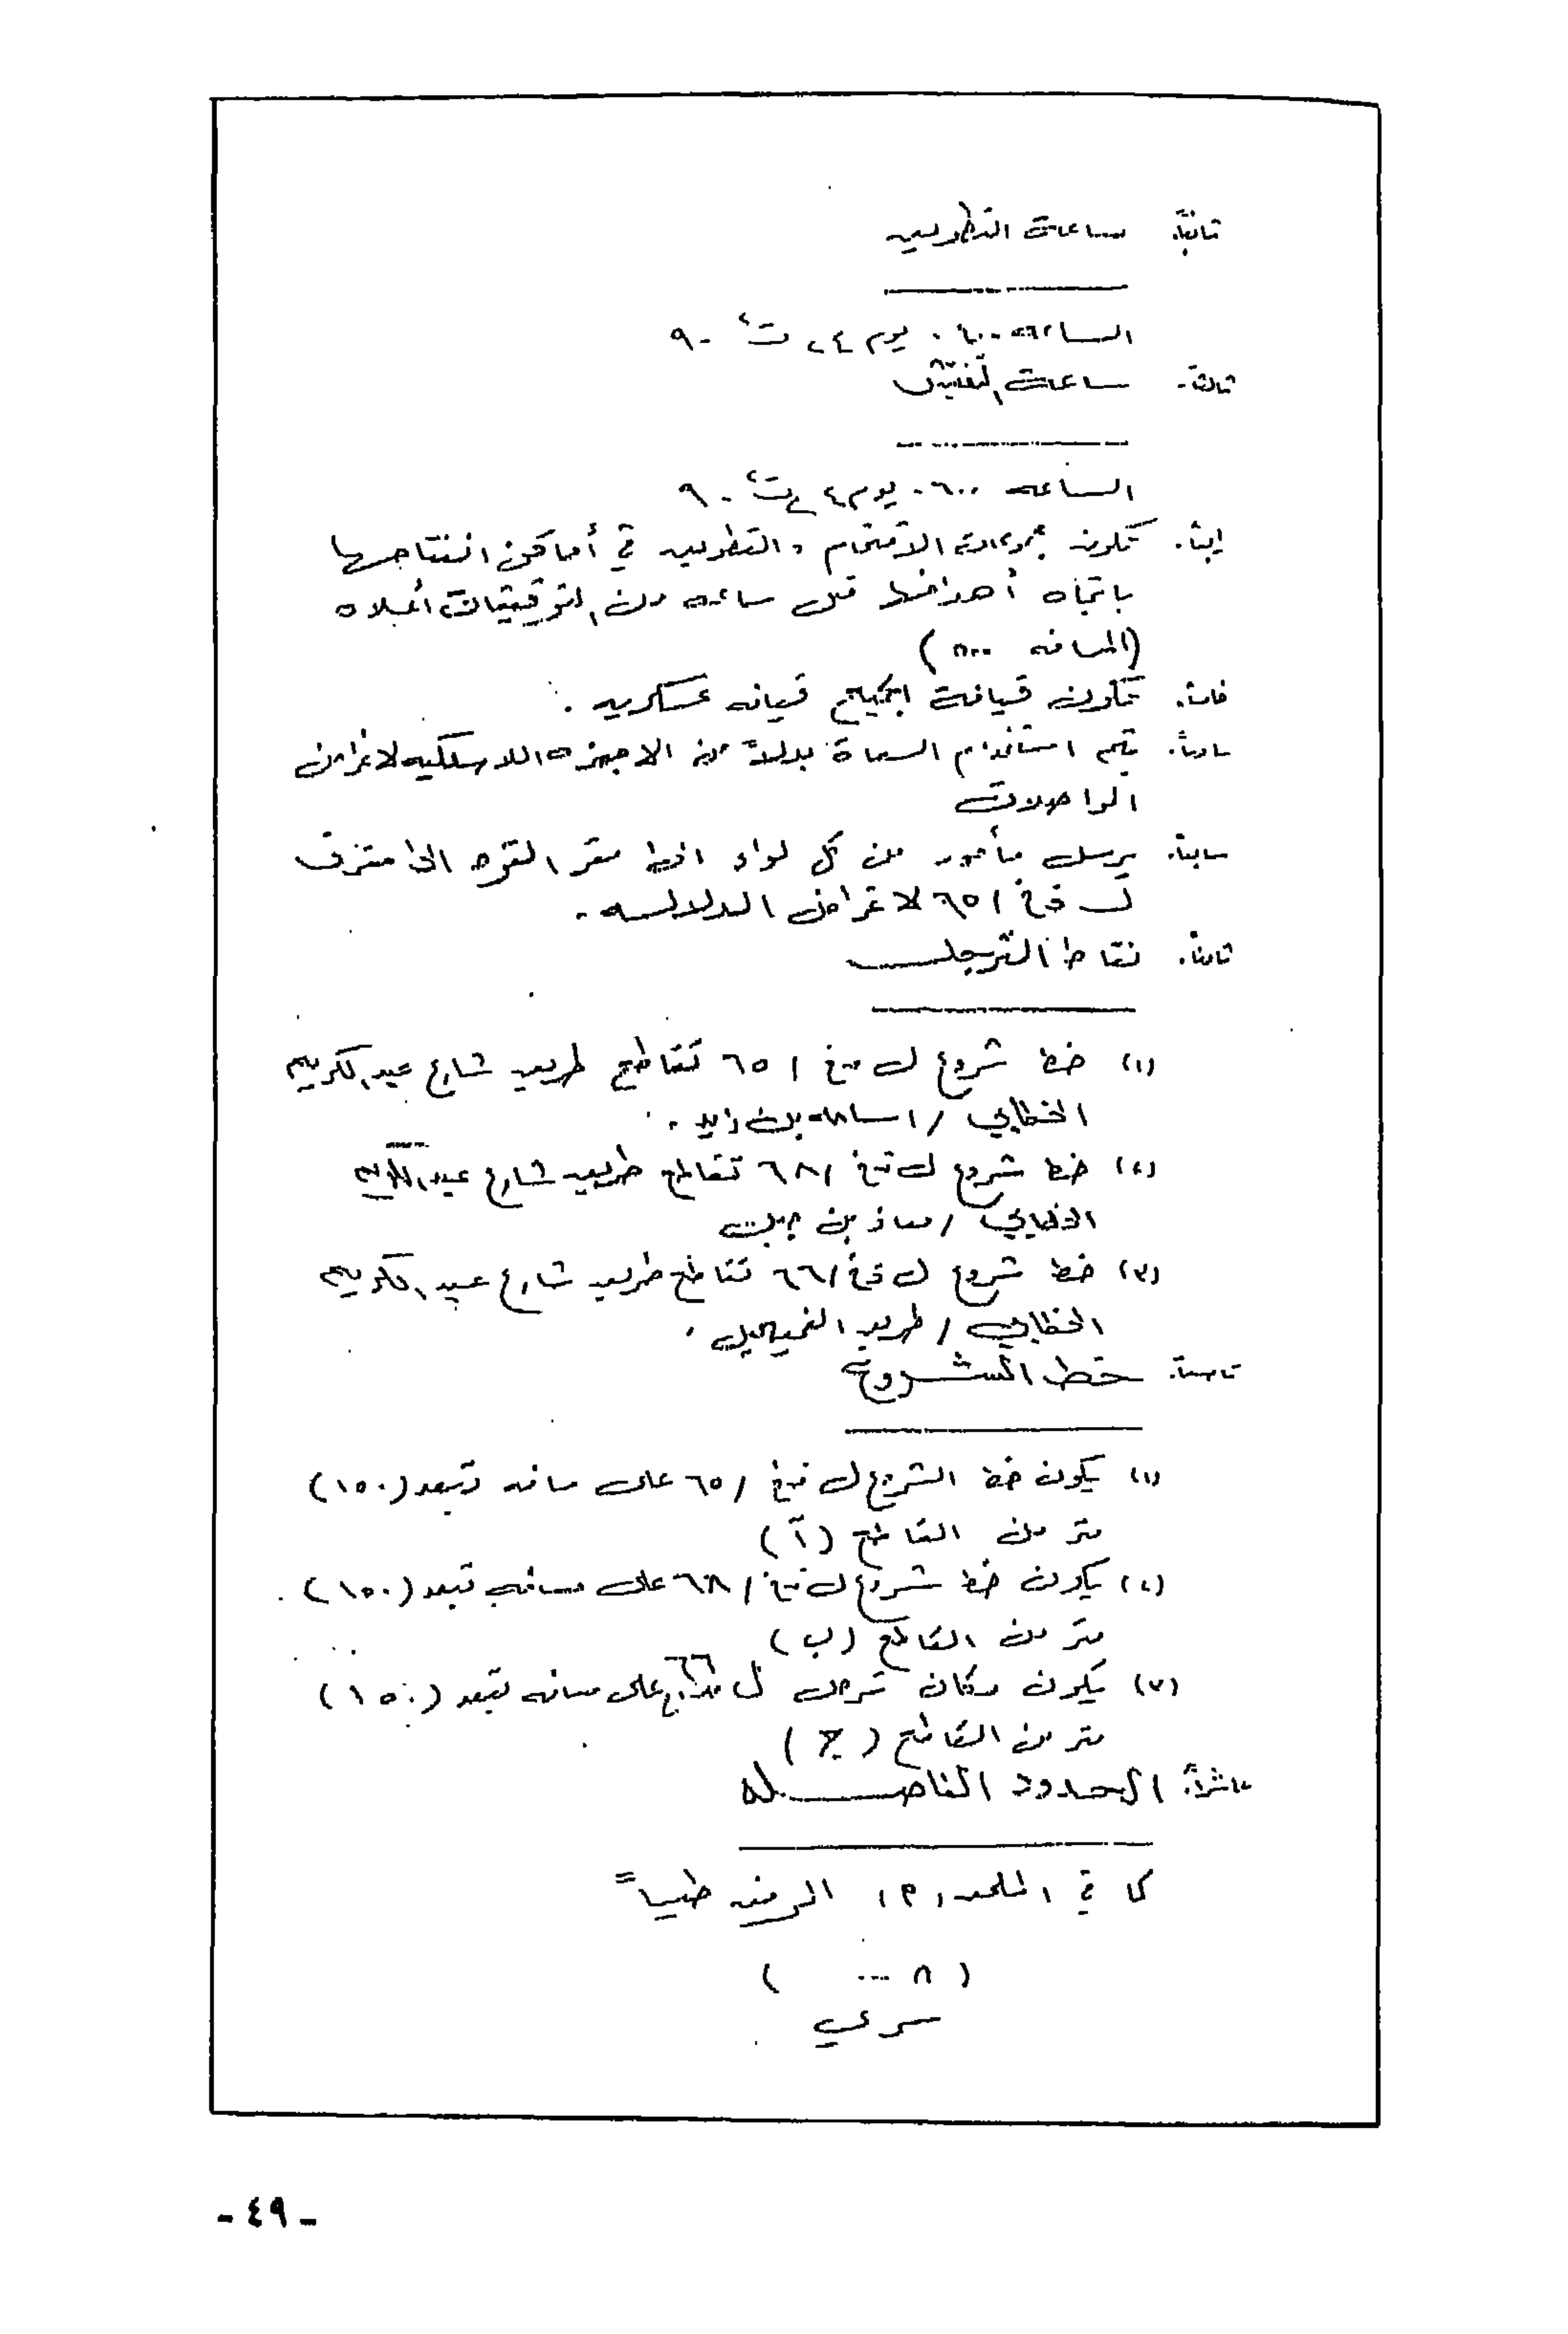 ثانياً. ساعات التطويب
الساعه ٠٦٠٠ يوم ٢٤ ت٢ ٩٠
ثالثاً. ساعات التفتيش
الساعه ٠٦٠٠ يوم ٢٤ ت٢ ٩٠
رابعاً. تكون مجموعات الاقتحام والتطويق في أماكن انفتاحها
باتجاه أهدافها قبل ساعه من التوقيتات أعلاه
(المسافه ٥٠٠)
خامساً. تكون قيافة الجميع قيافه عسكريه.
سادساً. يتم استخدام السعاة بدلاً من الاجهزه اللاسلكيه لاغراض
المواصلات
سابعاً. يرسل مأمور من كل لواء الى مقر القوه الى
ل ق خ / ٦٥ لاغراض الدلاله.
ثامناً. نقاط الترجل
(١) خط شروع ل ق خ / ٦٥ تقاطع طريق شارع عبد الكريم
الخطابي / اسامه بن زيد.
(٢) خط شروع ل ق خ / ٦٨ تقاطع طريق شارع عبد الكريم
الخطابي / معاذ بن جبل
(٣) خط شروع ل ق خ / ٦٦ تقاطع طريق شارع عبد الكريم
الخطابي / طريق الفحيحيل.
تاسعاً. خط الشروع
(١) يكون خط الشروع ل ق خ / ٦٥ على مسافه تبعد (١٥٠)
متر من القاطع (أ)
(٢) يكون خط شروع ل ق خ / ٦٨ على مسافه تبعد (١٥٠)
متر من القاطع (ب)
(٣) يكون مكان ترجل ل ٦٦ على مسافه تبعد (١٥٠)
متر من القاطع (ج)
عاشراً. الحدود الفاصله
كما في الملحق (م) المرفق طياً
(٨ ....)
سري
-٤٩-